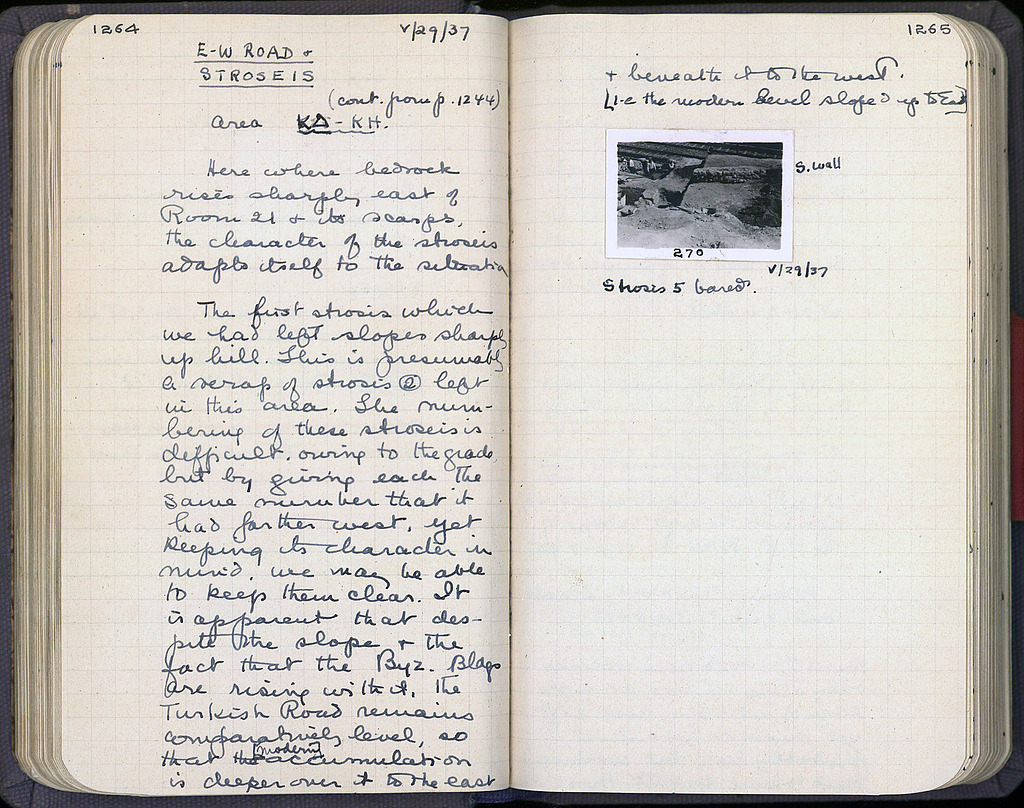 1264
V/29/37
E-W ROAD &
STROSEIS
(cont. from p. 1244)
Area KΔ-KH.
Here where bedrock
rises sharply east of
Room 21 & its scarps,
the character of the stroseis
adapts itself to the situation
The first strosis which
we had left slopes sharply
up hill. This is presumably
a scrap of strosis ② left
in this area. The num-
bering of these stroseis is
difficult, owing to the grade
but by giving each the
same number that it
had farther west, yet
keeping its character in
mind, we may be able
to keep them clear. It
is apparent that des-
pite the slope & the
fact that the Byz. Bldgs
are rising with it, the
Turkish Road remains
comparatively level, so
[modern]
that the accumulation
is deeper over it to the east
1265
+ beneath it to the west.
[i.e the modern level slopes up to East]
S. wall
270
V/29/37
Strosis 5 bared.